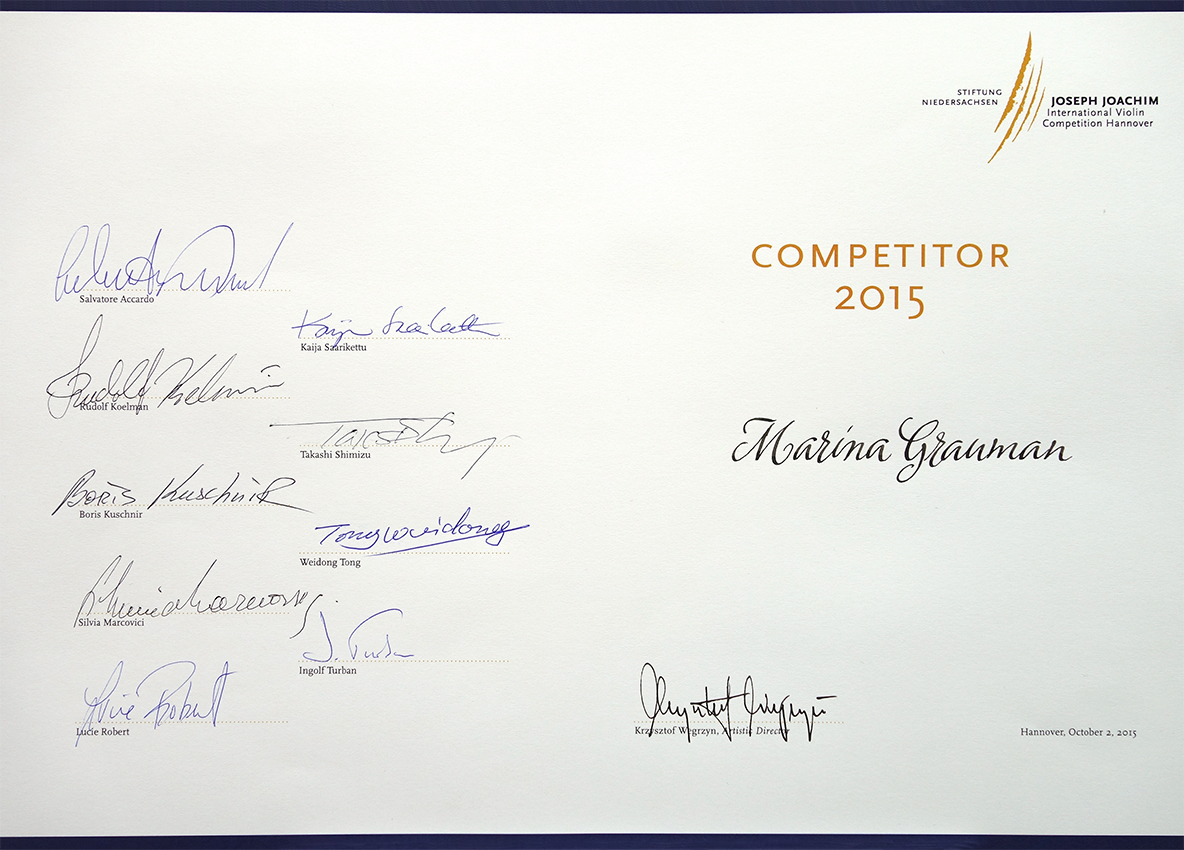 STIFTUNG
NIEDERSACHSEN
JOSEPH JOACHIM
International Violin
Competition Hannover
COMPETITOR
2015
Marina Grauman
Salvatore Accardo
Kaija Saarikettu
Rudolf Koelman
Rudolf Koelman
Takashi Shimizu
Boris Kuschnir
Boris Kuschnir
Tong Weidong
Weidong Tong
Silvia Marcovici
J. Turban
Ingolf Turban
Lucie Robert
Lucie Robert
Krzysztof Węgrzyn, Artistic Director
Hannover, October 2, 2015